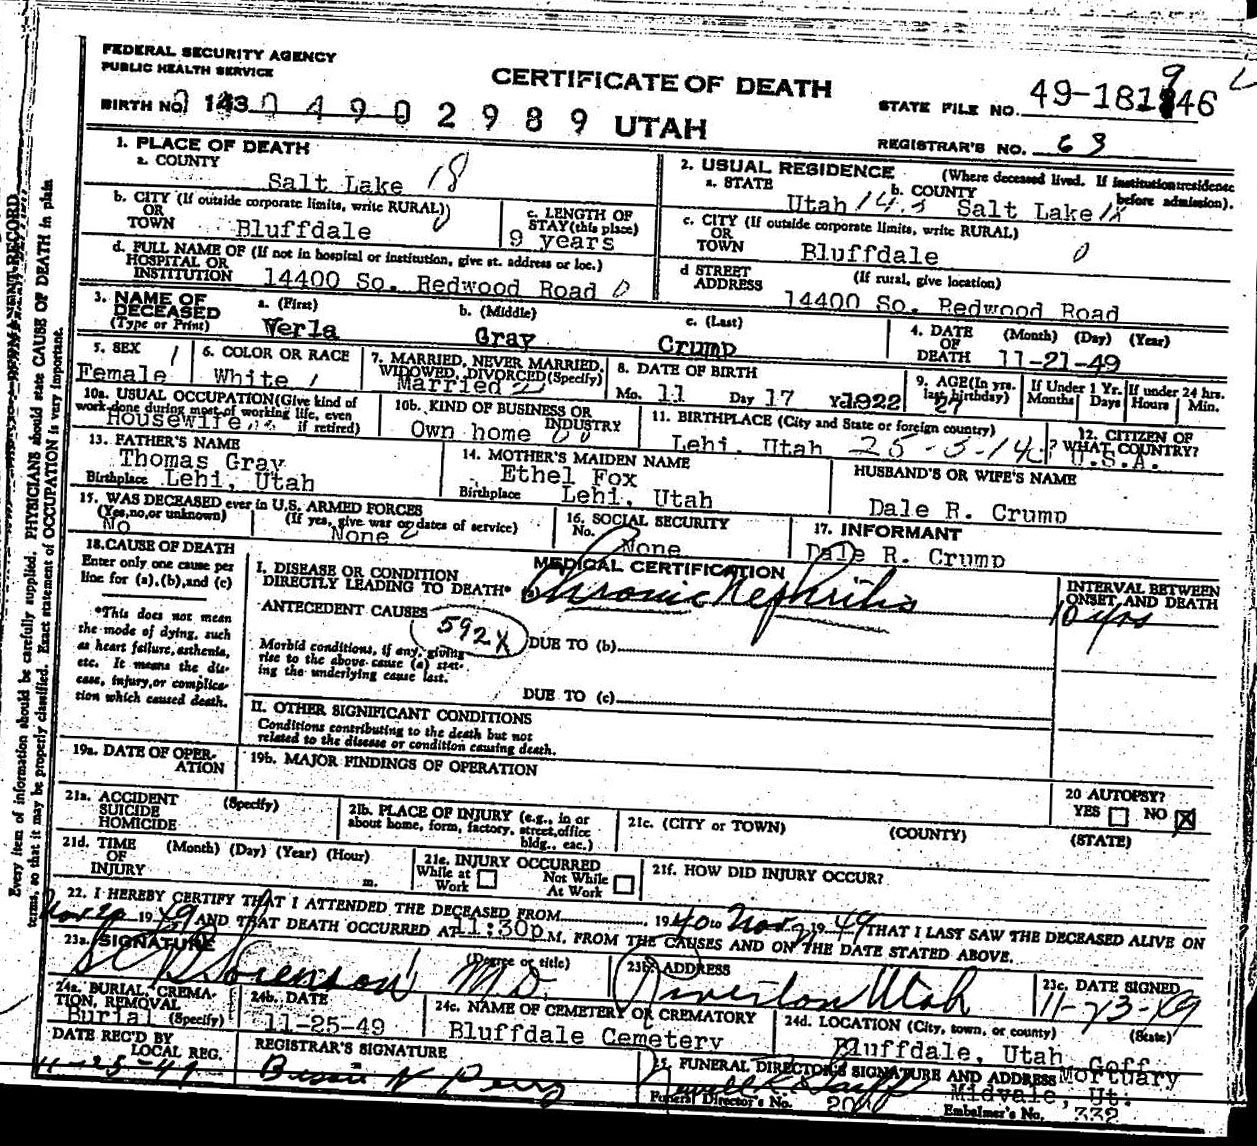 FEDERAL SECURITY AGENCY
PUBLIC HEALTH SERVICE
CERTIFICATE OF DEATH
STATE FILE NO. 49-181946
BIRTH NO. 143 0 4 9 0 2 9 8 9 UTAH
REGISTRAR'S NO. 63
1. PLACE OF DEATH
a. COUNTY
Salt Lake 18
2. USUAL RESIDENCE (Where deceased lived. If institution:residence before admission).
a. STATE b. COUNTY
Utah Salt Lake
b. CITY (If outside corporate limits, write RURAL)
OR
TOWN Bluffdale
c. LENGTH OF
STAY(this place)
9 years
c. CITY (If outside corporate limits, write RURAL)
OR
TOWN Bluffdale 0
d. FULL NAME OF (If not in hospital or institution, give st. address or loc.)
HOSPITAL OR
INSTITUTION 14400 So. Redwood Road 0
d STREET (If rural, give location)
ADDRESS
14400 So. Redwood Road
3. NAME OF DECEASED
(Type or Print)
a. (First) b. (Middle) c. (Last)
Verla Gray Crump
4. DATE OF DEATH (Month) (Day) (Year)
11-21-49
5. SEX 1
Female
6. COLOR OR RACE
White 1
7. MARRIED, NEVER MARRIED,
WIDOWED, DIVORCED(Specify)
Married 2
8. DATE OF BIRTH
Mo. 11 Day 17 Yr. 1922
9. AGE(In yrs.
last birthday)
27
If Under 1 Yr.
Months Days
If under 24 hrs.
Hours Min.
10a. USUAL OCCUPATION(Give kind of
work done during most of working life, even
if retired)
Housewife
10b. KIND OF BUSINESS OR
INDUSTRY
Own home
11. BIRTHPLACE (City and State or foreign country)
Lehi, Utah 25-3-14
12. CITIZEN OF
WHAT COUNTRY?
U.S.A.
13. FATHER'S NAME
Thomas Gray
Birthplace Lehi, Utah
14. MOTHER'S MAIDEN NAME
Ethel Fox
Birthplace Lehi, Utah
HUSBAND'S OR WIFE'S NAME
Dale R. Crump
15. WAS DECEASED ever in U.S. ARMED FORCES
(Yes,no,or unknown) (If yes, give war or dates of service)
No None
16. SOCIAL SECURITY
No. None
17. INFORMANT
Dale R. Crump
18. CAUSE OF DEATH
Enter only one cause per
line for (a), (b), and (c)
*This does not mean
the mode of dying, such
as heart failure, asthenia,
etc. It means the dis-
ease, injury, or complica-
tion which caused death.
MEDICAL CERTIFICATION
I. DISEASE OR CONDITION
DIRECTLY LEADING TO DEATH* Chronic Nephritis
INTERVAL BETWEEN
ONSET AND DEATH
10 yrs
ANTECEDENT CAUSES
592X
Morbid conditions, if any, giving
rise to the above cause (a) stat-
ing the underlying cause last.
DUE TO (b)
DUE TO (c)
II. OTHER SIGNIFICANT CONDITIONS
Conditions contributing to the death but not
related to the disease or condition causing death.
19a. DATE OF OPER-
ATION
19b. MAJOR FINDINGS OF OPERATION
20 AUTOPSY?
YES NO X
21a. ACCIDENT (Specify)
SUICIDE
HOMICIDE
21b. PLACE OF INJURY (e.g., in or
about home, form, factory, street,office
bldg., eac.)
21c. (CITY or TOWN) (COUNTY) (STATE)
21d. TIME (Month) (Day) (Year) (Hour)
OF
INJURY m.
21e. INJURY OCCURRED
While at Work Not While At Work
21f. HOW DID INJURY OCCUR?
22. I HEREBY CERTIFY THAT I ATTENDED THE DECEASED FROM 1940 to Nov 21 1949 THAT I LAST SAW THE DECEASED ALIVE ON
Nov 20 1949 AND THAT DEATH OCCURRED AT 11:30p M, FROM THE CAUSES AND ON THE DATE STATED ABOVE.
23a. SIGNATURE (Degree or title)
Sorenson M.D.
23b. ADDRESS
Riverton Utah
23c. DATE SIGNED
11-23-49
24a. BURIAL, CREMA-
TION, REMOVAL
Burial (Specify)
24b. DATE
11-25-49
24c. NAME OF CEMETERY OR CREMATORY
Bluffdale Cemetery
24d. LOCATION (City, town, or county) (State)
Bluffdale, Utah
DATE REC'D BY
LOCAL REG.
11-25-49
REGISTRAR'S SIGNATURE
Bessie N Perry
25. FUNERAL DIRECTOR'S SIGNATURE AND ADDRESS
Goff Mortuary
Midvale, Ut.
Funeral Director's No. Embalmer's No. 332
Every item of information should be carefully supplied. PHYSICIANS should state CAUSE OF DEATH in plain
terms, so that it may be properly classified. Exact statement of OCCUPATION is very important.